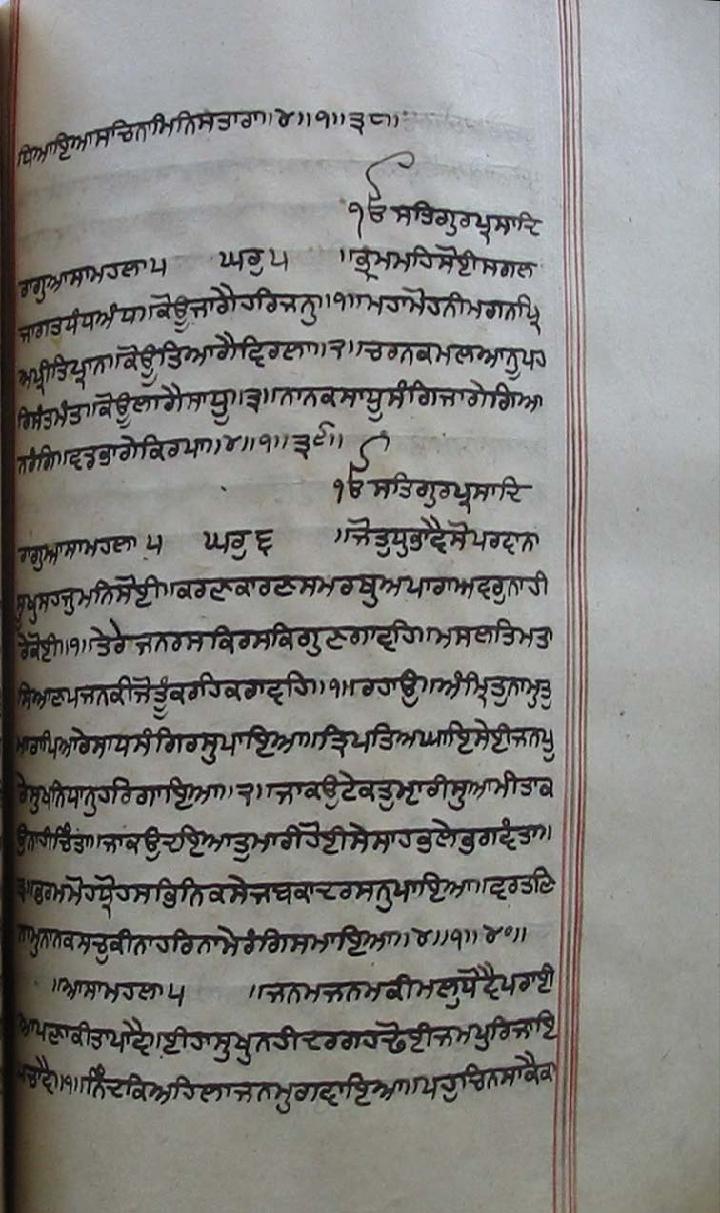 ਧਿਆਇਆਸਾਚਿਨਾਮਿਨਿਸਤਾਰਾ॥੪॥੧॥੩੮॥
ੴ ਸਤਿਗੁਰਪ੍ਰਸਾਦਿ
ਰਾਗੁਆਸਾਮਹਲਾ ੫ ਘਰੁ ੫ ॥ਭ੍ਰਮਮਹਿਸੋਈਸਗਲ
ਜਗਤਧੰਧਅੰਧ॥ਕੋਊਜਾਗੈਹਰਿਜਨੁ॥੧॥ਮਹਾਮੋਹਨੀਮਗਨਪ੍ਰਿ
ਅਪ੍ਰੀਤਿਪ੍ਰਾਨ॥ਕੋਊਤਿਆਗੈਵਿਰਲਾ॥੨॥ਚਰਨਕਮਲਆਨੂਪਹ
ਰਿਸੰਤਮੰਤ॥ਕੋਊਲਾਗੈਸਾਧੂ॥੩॥ਨਾਨਕਸਾਧੂਸੰਗਿਜਾਗੇਗਿਆ
ਨਰੰਗਿ॥ਵਡਭਾਗੇਕਿਰਪਾ॥੪॥੧॥੩੯॥
ੴ ਸਤਿਗੁਰਪ੍ਰਸਾਦਿ
ਰਾਗੁਆਸਾਮਹਲਾ ੫ ਘਰੁ ੬ ॥ਜੋਤੁਧੁਭਾਵੈਸੋਪਰਵਾਨਾ
ਸੂਖੁਸਹਜੁਮਨਿਸੋਈ॥ਕਰਣਕਾਰਣਸਮਰਥੁਅਪਾਰਾਅਵਰੁਨਾਹੀ
ਰੇਕੋਈ॥੧॥ਤੇਰੇਜਨਰਸਕਿਰਸਕਿਗੁਣਗਾਵਹਿ॥ਮਸਲਤਿਮਤਾ
ਸਿਆਣਪਜਨਕੀਜੋਤੂੰਕਰਹਿਕਰਾਵਹਿ॥੧॥ਰਹਾਉ॥ਅੰਮ੍ਰਿਤੁਨਾਮੁਤੁ
ਮਾਰਾਪਿਆਰੇਸਾਧਸੰਗਿਰਸੁਪਾਇਆ॥ਤ੍ਰਿਪਤਿਅਘਾਇਸੇਈਜਨਪੂ
ਰੇਸੁਖਨਿਧਾਨੁਹਰਿਗਾਇਆ॥੨॥ਜਾਕਉਟੇਕਤੁਮ੍ਹਾਰੀਸੁਆਮੀਤਾਕ
ਉਨਾਹੀਚਿੰਤਾ॥ਜਾਕਉਦਇਆਤੁਮਾਰੀਹੋਈਸੇਸਾਹਭਲੇਭਗਵੰਤਾ॥
੩॥ਭਰਮਮੋਹਧ੍ਰੋਹਸਭਿਨਿਕਸੇਜਬਕਾਦਰਸਨੁਪਾਇਆ॥ਵਰਤਣਿ
ਨਾਮੁਨਾਨਕਸਚੁਕੀਨਾਹਰਿਨਾਮੇਰੰਗਿਸਮਾਇਆ॥੪॥੧॥੪੦॥
॥ਆਸਾਮਹਲਾ ੫ ॥ਜਨਮਜਨਮਕੀਮਲੁਧੋਵੈਪਰਾਈ
ਆਪਣਾਕੀਤਾਪਾਵੈ॥ਈਹਾਸੁਖੁਨਹੀਦਰਗਹਢੋਈਜਮਪੁਰਿਜਾਇ
ਪਚਾਵੈ॥੧॥ਨਿੰਦਕਿਅਹਿਲਾਜਨਮੁਗਵਾਇਆ॥ਪਹੁਚਿਨਸਾਕੈਕ